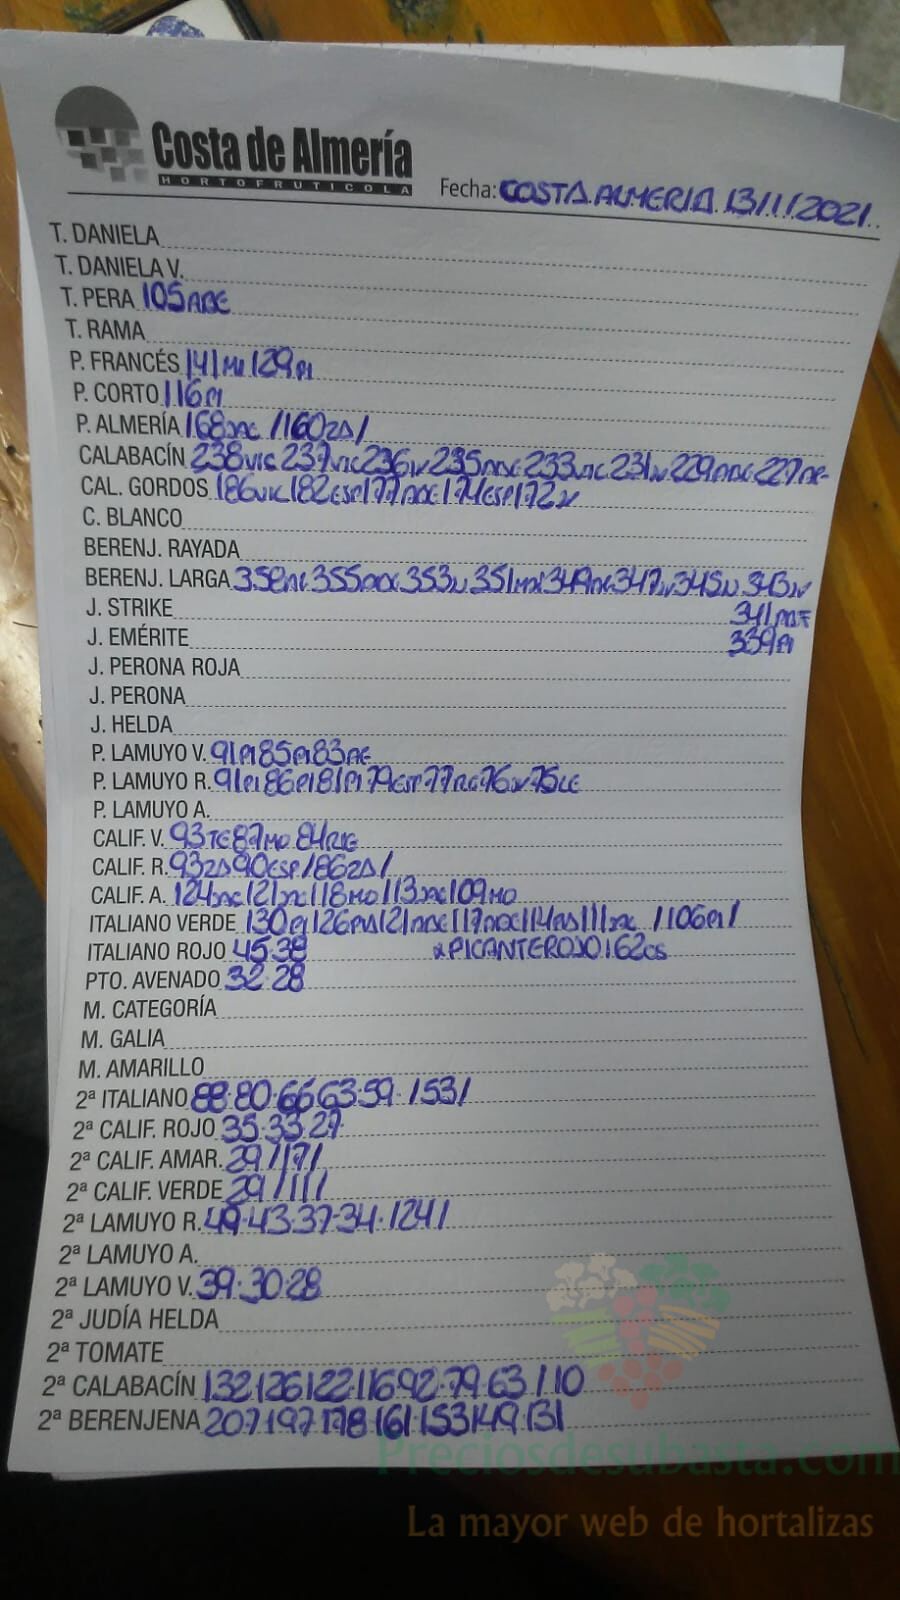 Costa de Almería
HORTOFRUTICOLA
Fecha: COSTA ALMERIA 13/11/2021
T. DANIELA
T. DANIELA V.
T. PERA 105
T. RAMA
P. FRANCÉS 141 129PI
P. CORTO 116PI
P. ALMERÍA 168 /160ZA/
CALABACÍN 238VIC 237VIC 236 235 233 231 229 227
CAL. GORDOS 186VIC 182ESP 177 174ESP 172
C. BLANCO
BERENJ. RAYADA
BERENJ. LARGA 358 355 353 351 349 347 345 343
J. STRIKE 341
J. EMÉRITE 339PI
J. PERONA ROJA
J. PERONA
J. HELDA
P. LAMUYO V. 91PI 85PI 83
P. LAMUYO R. 91PI 86PI 81PI 79ESP 77 76 75LE
P. LAMUYO A.
CALIF. V. 93TE 87MO 84
CALIF. R. 93ZA 90ESP /86ZA/
CALIF. A. 124 121 118MO 113 109MO
ITALIANO VERDE 130PI 126 121 117 114 111 /106PI/
ITALIANO ROJO 45·38 PICANTE ROJO: 62CS
PTO. AVENADO 32·28
M. CATEGORÍA
M. GALIA
M. AMARILLO
2ª ITALIANO 88·80·66·63·59· /53/
2ª CALIF. ROJO 35·33·27
2ª CALIF. AMAR. 29 /17/
2ª CALIF. VERDE 29 /11/
2ª LAMUYO R. 49·43·37·34· /24/
2ª LAMUYO A.
2ª LAMUYO V. 39·30·28
2ª JUDÍA HELDA
2ª TOMATE
2ª CALABACÍN 132·126·122·116·92·79·63 /10
2ª BERENJENA 207·197·178·161·153·149·131
Preciosdesubasta.com
La mayor web de hortalizas